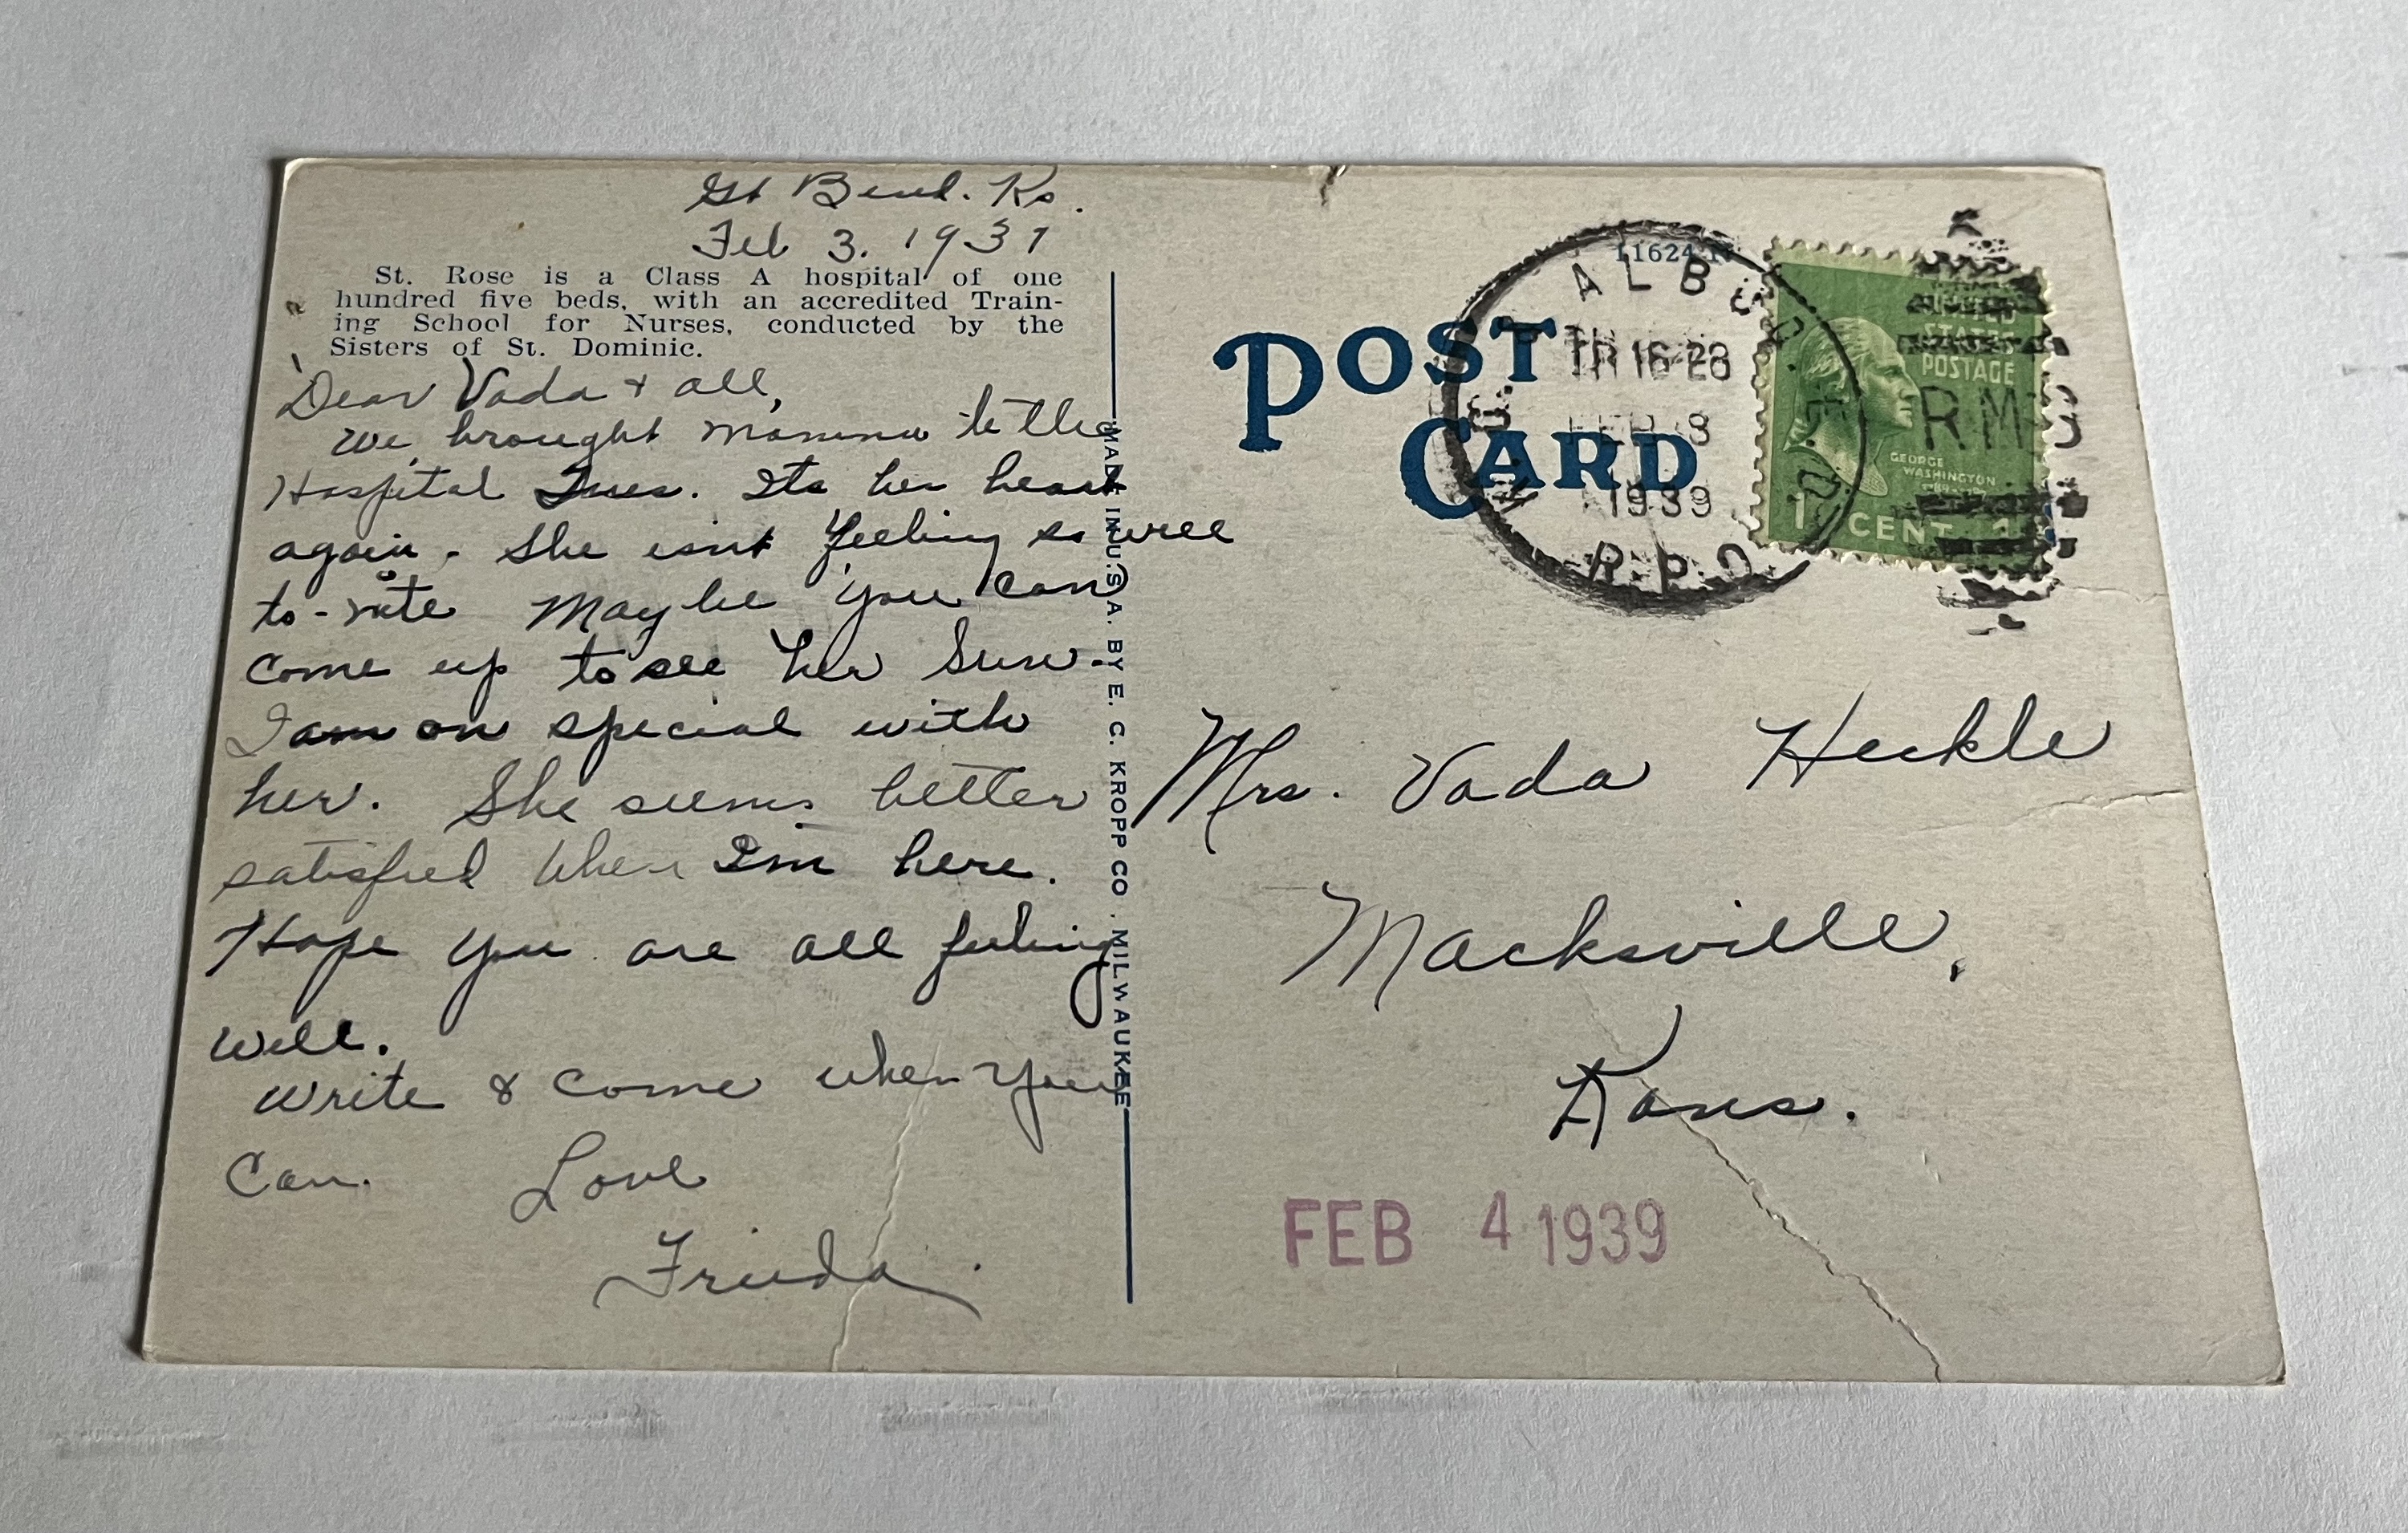 Gt Bend. Ks.
Feb 3. 1939
St. Rose is a Class A hospital of one
hundred five beds, with an accredited Train-
ing School for Nurses, conducted by the
Sisters of St. Dominic.
Dear Vada & all,
We brought Mamma to the
Hospital Tues. Its her heart
again. She isnt feeling so well
to-nite Maybe you can
come up to see her Sun.
I am on special with
her. She seems better
satisfied when Im here.
Hope you are all feeling
well.
Write & come when you
Can. Love
Frieda.
MADE IN U.S.A. BY E. C. KROPP CO. MILWAUKEE
POST
CARD
11624 N
ALBU
TR 16
FEB 3
1939
R.P.O.
UNITED
STATES
POSTAGE
GEORGE
WASHINGTON
1 CENT 1
RMS
Mrs. Vada Heckle
Macksville,
Kans.
FEB 4 1939